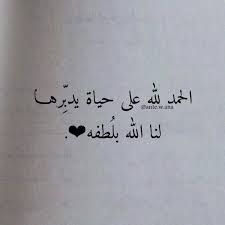 الحمد لله على حياة يدبِّرها
@ante.w.ana
لنا الله بلُطفه❤.